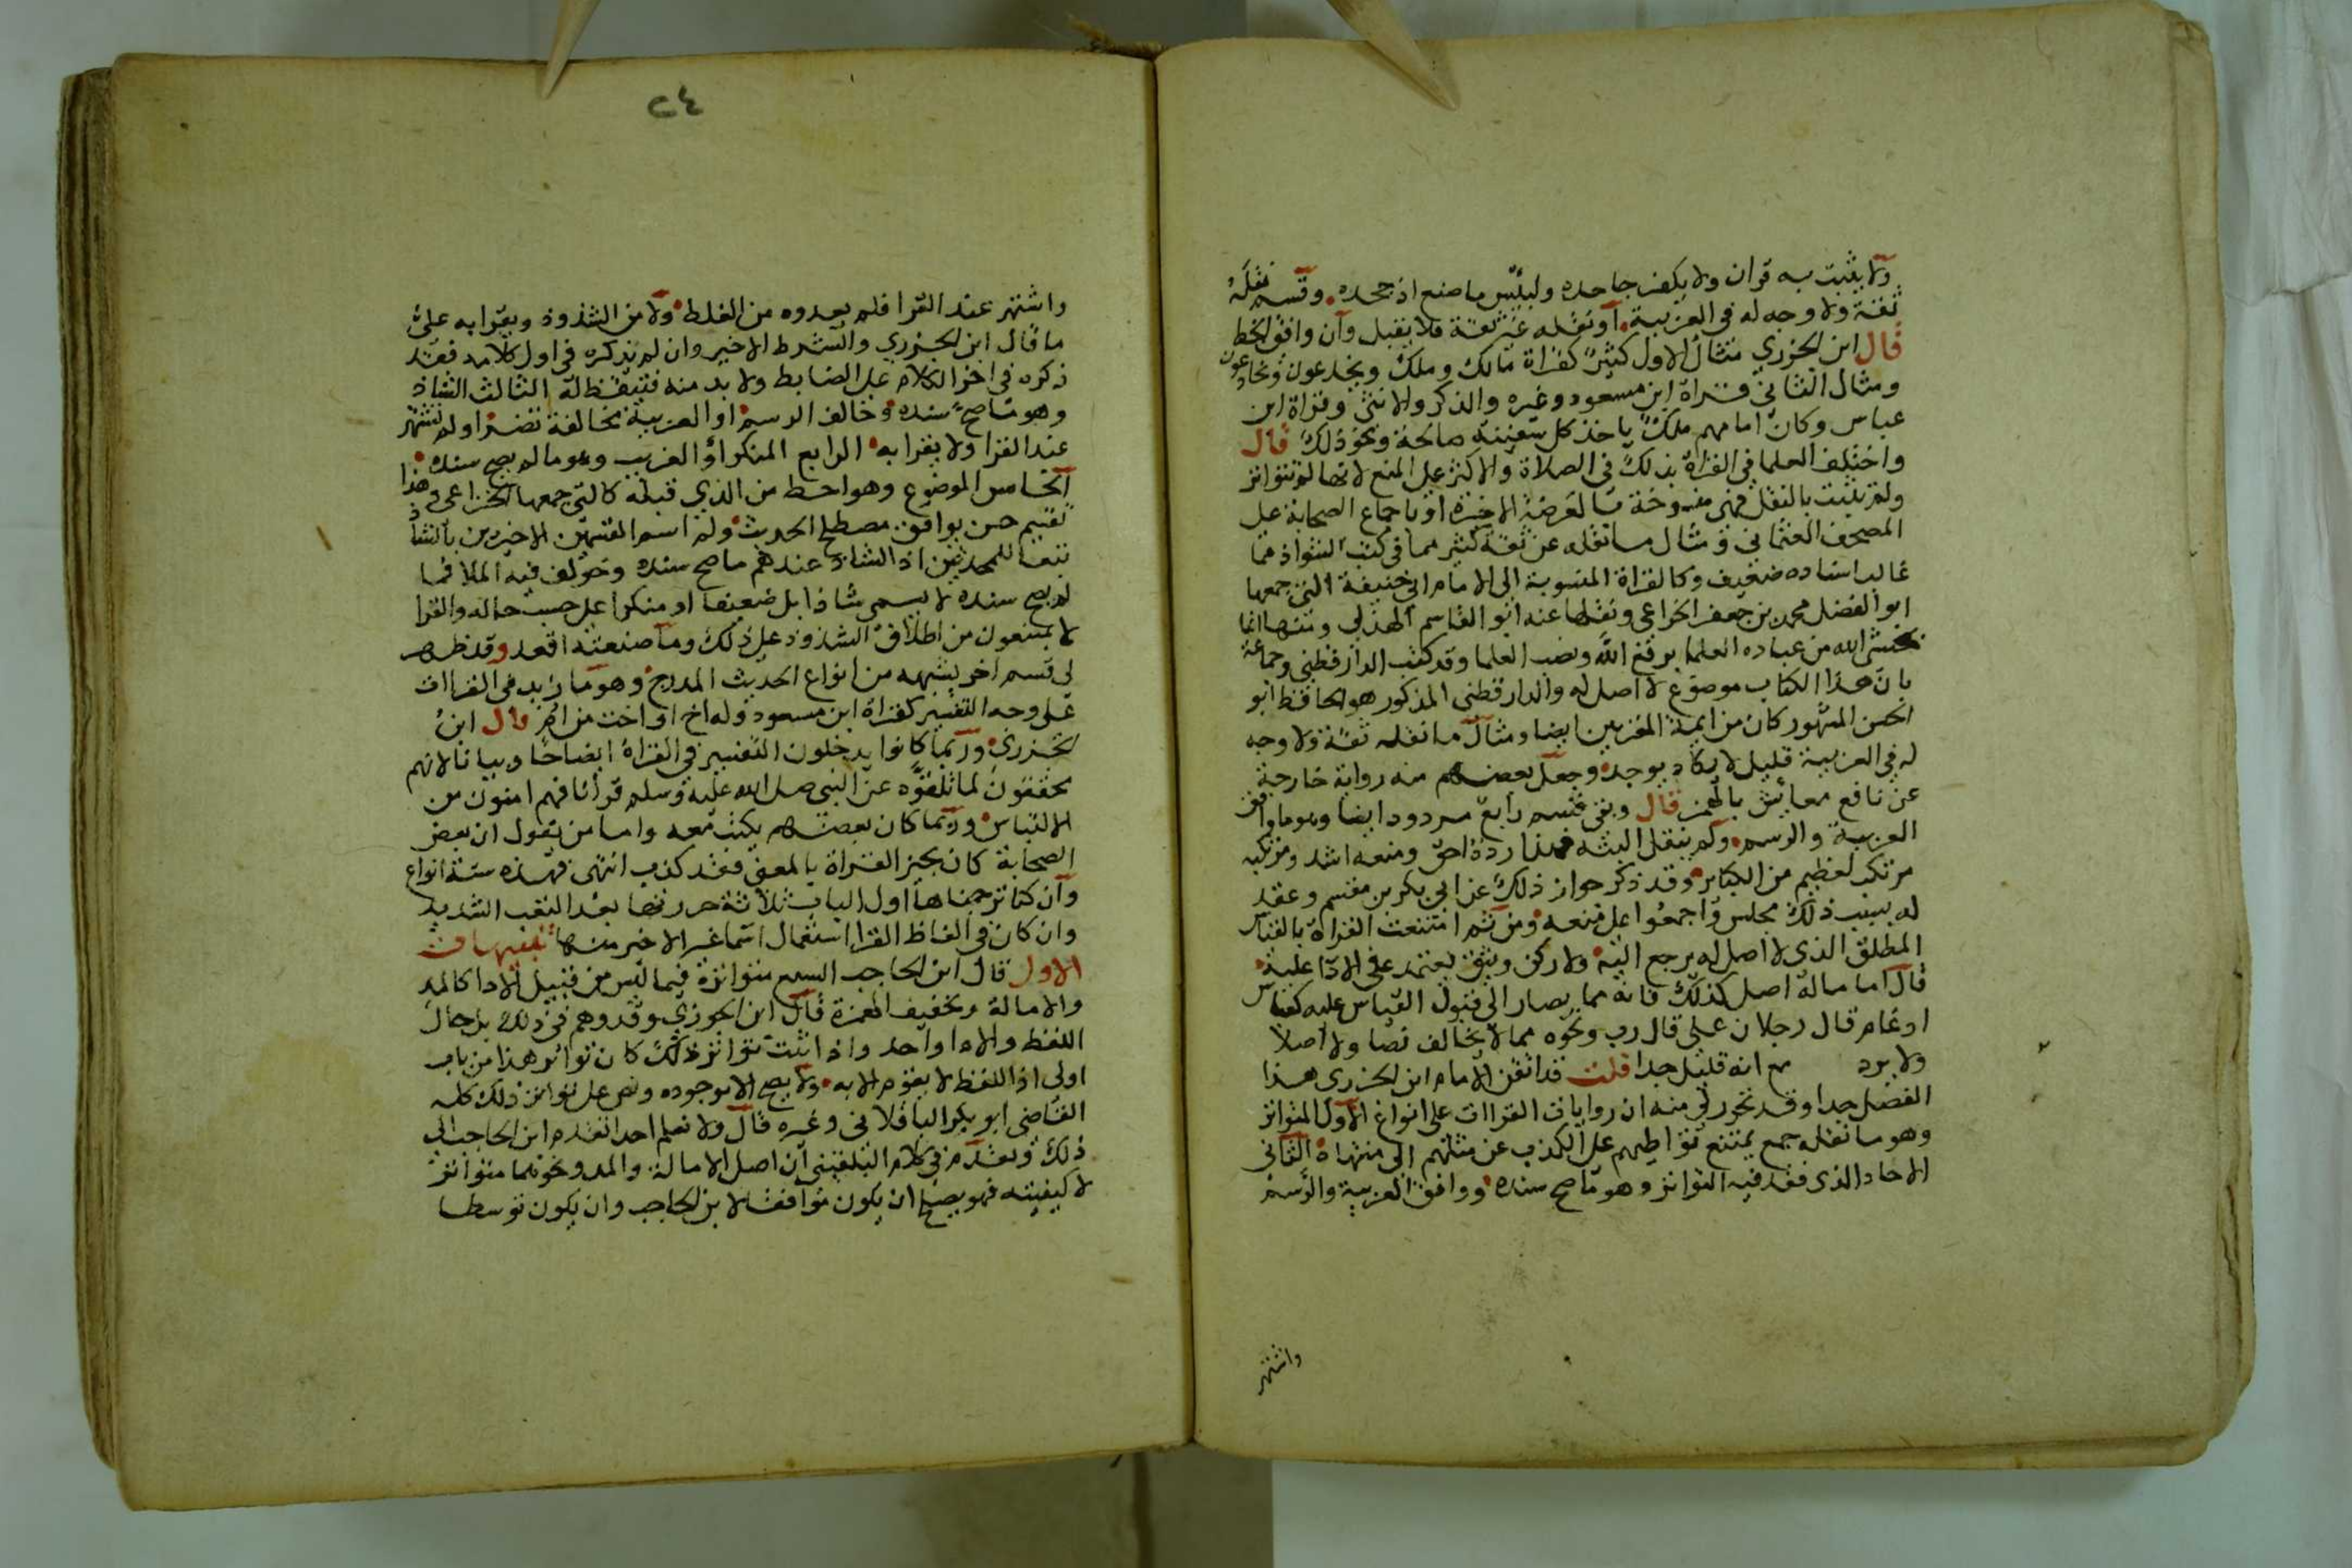 ولا يثبت به قران ولا يكفر جاحده ولبئس ما صنع اذ جحده وقسم نقله
ثقة ولا وجه له في العربية او نقله غير ثقة فلا يقبل وان وافق الخط
قال ابن الجزري مثال الاول كثير كقراة مالك وملك ويخدعون ويخادعون
ومثال الثاني قراة ابن مسعود وغيره والذكر والانثى وقراة ابن
عباس وكان امامهم ملك ياخذ كل سفينة صالحة ونحو ذلك قال
واختلف العلما في القراة بذلك في الصلاة والاكثر على المنع لانها لم تتواتر
ولم تثبت بالنقل فهي منسوخة بالعرضة الاخيرة او باجماع الصحابة على
المصحف العثماني ومثال ما نقله غير ثقة كثير مما في كتب الشواذ مما
غالب اسناده ضعيف وكالقراة المنسوبة الى الامام ابي حنيفة التي جمعها
ابو الفضل محمد بن جعفر الخزاعي ونقلها عنه ابو القاسم الهذلي ومنها انما
يخشى الله من عباده العلما برفع الله ونصب العلما وقد كتب الدارقطني وجماعة
بان هذا الكتاب موضوع لا اصل له والدارقطني المذكور هو الحافظ ابو
الحسن المشهور كان من ايمة المقريين ايضا ومثال ما نقله ثقة ولا وجه
له في العربية قليل لا يكاد يوجد وجعل بعضهم منه رواية خارجة
عن نافع معائش بالهمز قال وبقي قسم رابع مردود ايضا وهو ما وافق
العربية والرسم ولم ينقل البتة فهذا رده احق ومنعه اشد ومرتكبه
مرتكب لعظيم من الكباير وقد ذكر جواز ذلك عن ابي بكر بن مقسم وعقد
له بسبب ذلك مجلس واجمعوا على منعه ومن ثم امتنعت القراة بالقياس
المطلق الذي لا اصل له يرجع اليه ولا ركن وثيق يعتمد في الادا عليه
قال اما ماله اصل كذلك فانه مما يصار الى قبول القياس عليه كقياس
ادغام قال رجلان على قال رب ونحوه مما لا يخالف نصا ولا اصلا
ولا يرد مع انه قليل جدا قلت قد اتقن الامام ابن الجزري هذا
الفصل جدا وقد تحرر لي منه ان روايات القراات على انواع الاول المتواتر
وهو ما نقله جمع يمتنع تواطيهم على الكذب عن مثلهم الى منتهاه الثاني
الاحاد الذي فقد فيه التواتر وهو ما صح سنده ووافق العربية والرسم
واشتهر
٢٤
واشتهر عند القرا فلم يعدوه من الغلط ولا من الشذوذ ويقرا به على
ما قال ابن الجزري والشرط الاخير وان لم يذكره في اول كلامه فقد
ذكره في اخر الكلام على الضابط ولا بد منه فتيقظ له الثالث الشاذ
وهو ما صح سنده وخالف الرسم او العربية مخالفة تضر او لم يشتهر
عند القرا ولا يقرا به الرابع المنكر او الغريب وهو ما لم يصح سنده
الخامس الموضوع وهو احط من الذي قبله كالتي جمعها الخزاعي وهذا
تقسيم حسن يوافق مصطلح الحديث ولم اسم القسمين الاخيرين بالشاذ
تبعا للمحدثين اذ الشاذ عندهم ما صح سنده وخولف فيه الملا فما
لم يصح سنده لا يسمى شاذا بل ضعيفا او منكرا على حسب حاله والقرا
لا يمتنعون من اطلاق الشذوذ على ذلك وما صنعته اقعد وقد ظهر
لي قسم اخر يشبهه من انواع الحديث المدرج وهو ما زيد في القراات
على وجه التفسير كقراة ابن مسعود وله اخ او اخت من ام قال ابن
الجزري وربما كانوا يدخلون التفسير في القراة ايضاحا وبيانا لانهم
محققون لما تلقوه عن النبي صلى الله عليه وسلم قرانا فهم امنون من
الالتباس وربما كان بعضهم يكتبه معه واما من يقول ان بعض
الصحابة كان يجيز القراة بالمعنى فقد كذب انتهى فهذه ستة انواع
وان كنا ترجمناها اول الباب ثلاثة حررتها بعد التعب الشديد
وان كان في الفاظ القرا استعمال اسما غير الاخير منها تنبيهات
الاول قال ابن الحاجب السبع متواترة فيما ليس من قبيل الادا كالمد
والامالة وتخفيف الهمزة قال ابن الجوزي وقد وهم في ذلك بل حال
اللفظ والادا واحد واذا ثبت تواتر ذلك كان تواتر هذا من باب
اولى اذ اللفظ لا يقوم الا به ولا يصح الا بوجوده ونص على تواتر ذلك كله
القاضي ابو بكر الباقلاني وغيره قال ولا نعلم احدا تقدم ابن الحاجب الى
ذلك وتقدم في كلام البلقيني ان اصل الامالة والمد ونحوهما متواتر
لا كيفيته فهو يصح ان يكون موافقا لابن الحاجب وان يكون توسطا